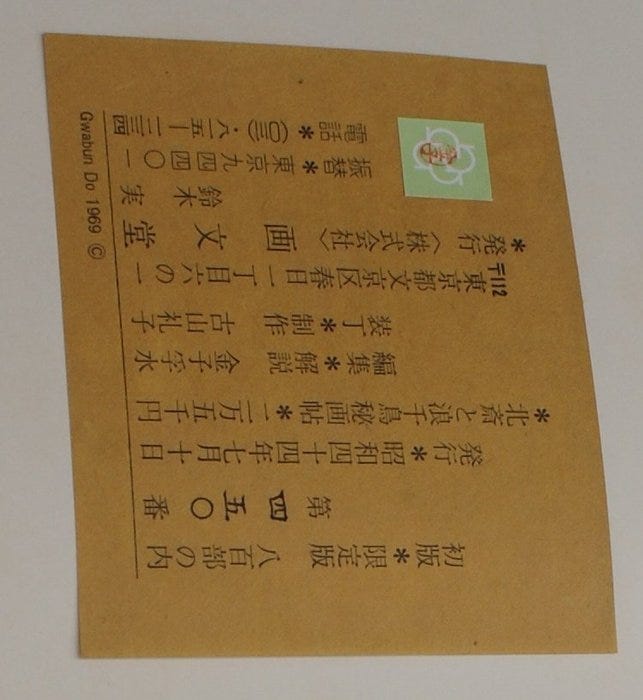 初版*限定版 八百部の内
第四五〇番
発行*昭和四十四年七月十日
*北斎と浪千鳥秘画帖*二万五千円
編集*解説 金子孚水
装丁*制作 古山礼子
〒112 東京都文京区春日一丁目六の一
*発行〈株式会社〉画文堂
鈴木実
振替*東京九四四〇一
電話*(〇三)・八一五ー一二三四
Gwabun Do 1969 ©